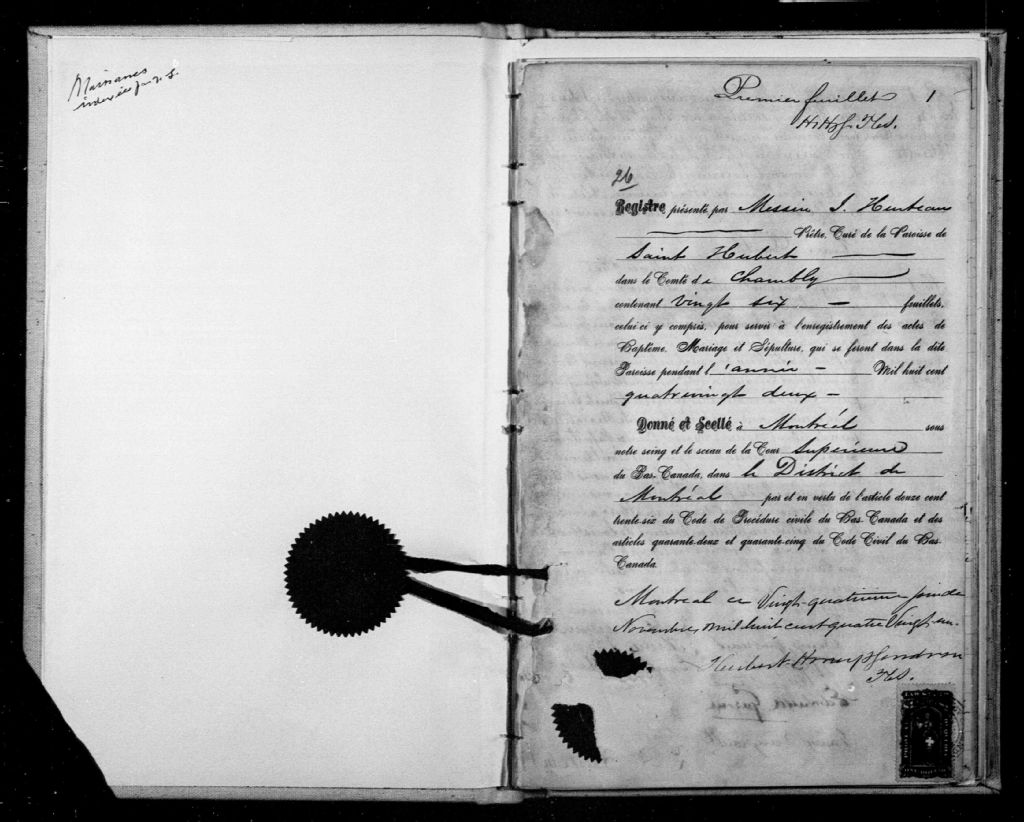 Naissances
indexées
Premier feuillet 1
26
Registre présenté par Messire J. Hurteau
Prêtre, Curé de la Paroisse de
Saint Hubert
dans le Comté de Chambly
contenant Vingt six feuillets,
celui-ci y compris, pour servir à l'enregistrement des actes de
Baptême, Mariage et Sépulture, qui se feront dans la dite
Paroisse pendant l'année Mil huit cent
quatrevingt deux
Donné et Scellé à Montréal sous
notre seing et le sceau de la Cour Supérieure
du Bas-Canada, dans le District de
Montréal par et en vertu de l'article douze cent
trente-six du Code de Procédure civile du Bas-Canada et des
articles quarante-deux et quarante-cinq du Code Civil du Bas-
Canada.
Montreal ce Vingt-quatrieme jour de
Novembre, mil huit cent quatre Vingt un.